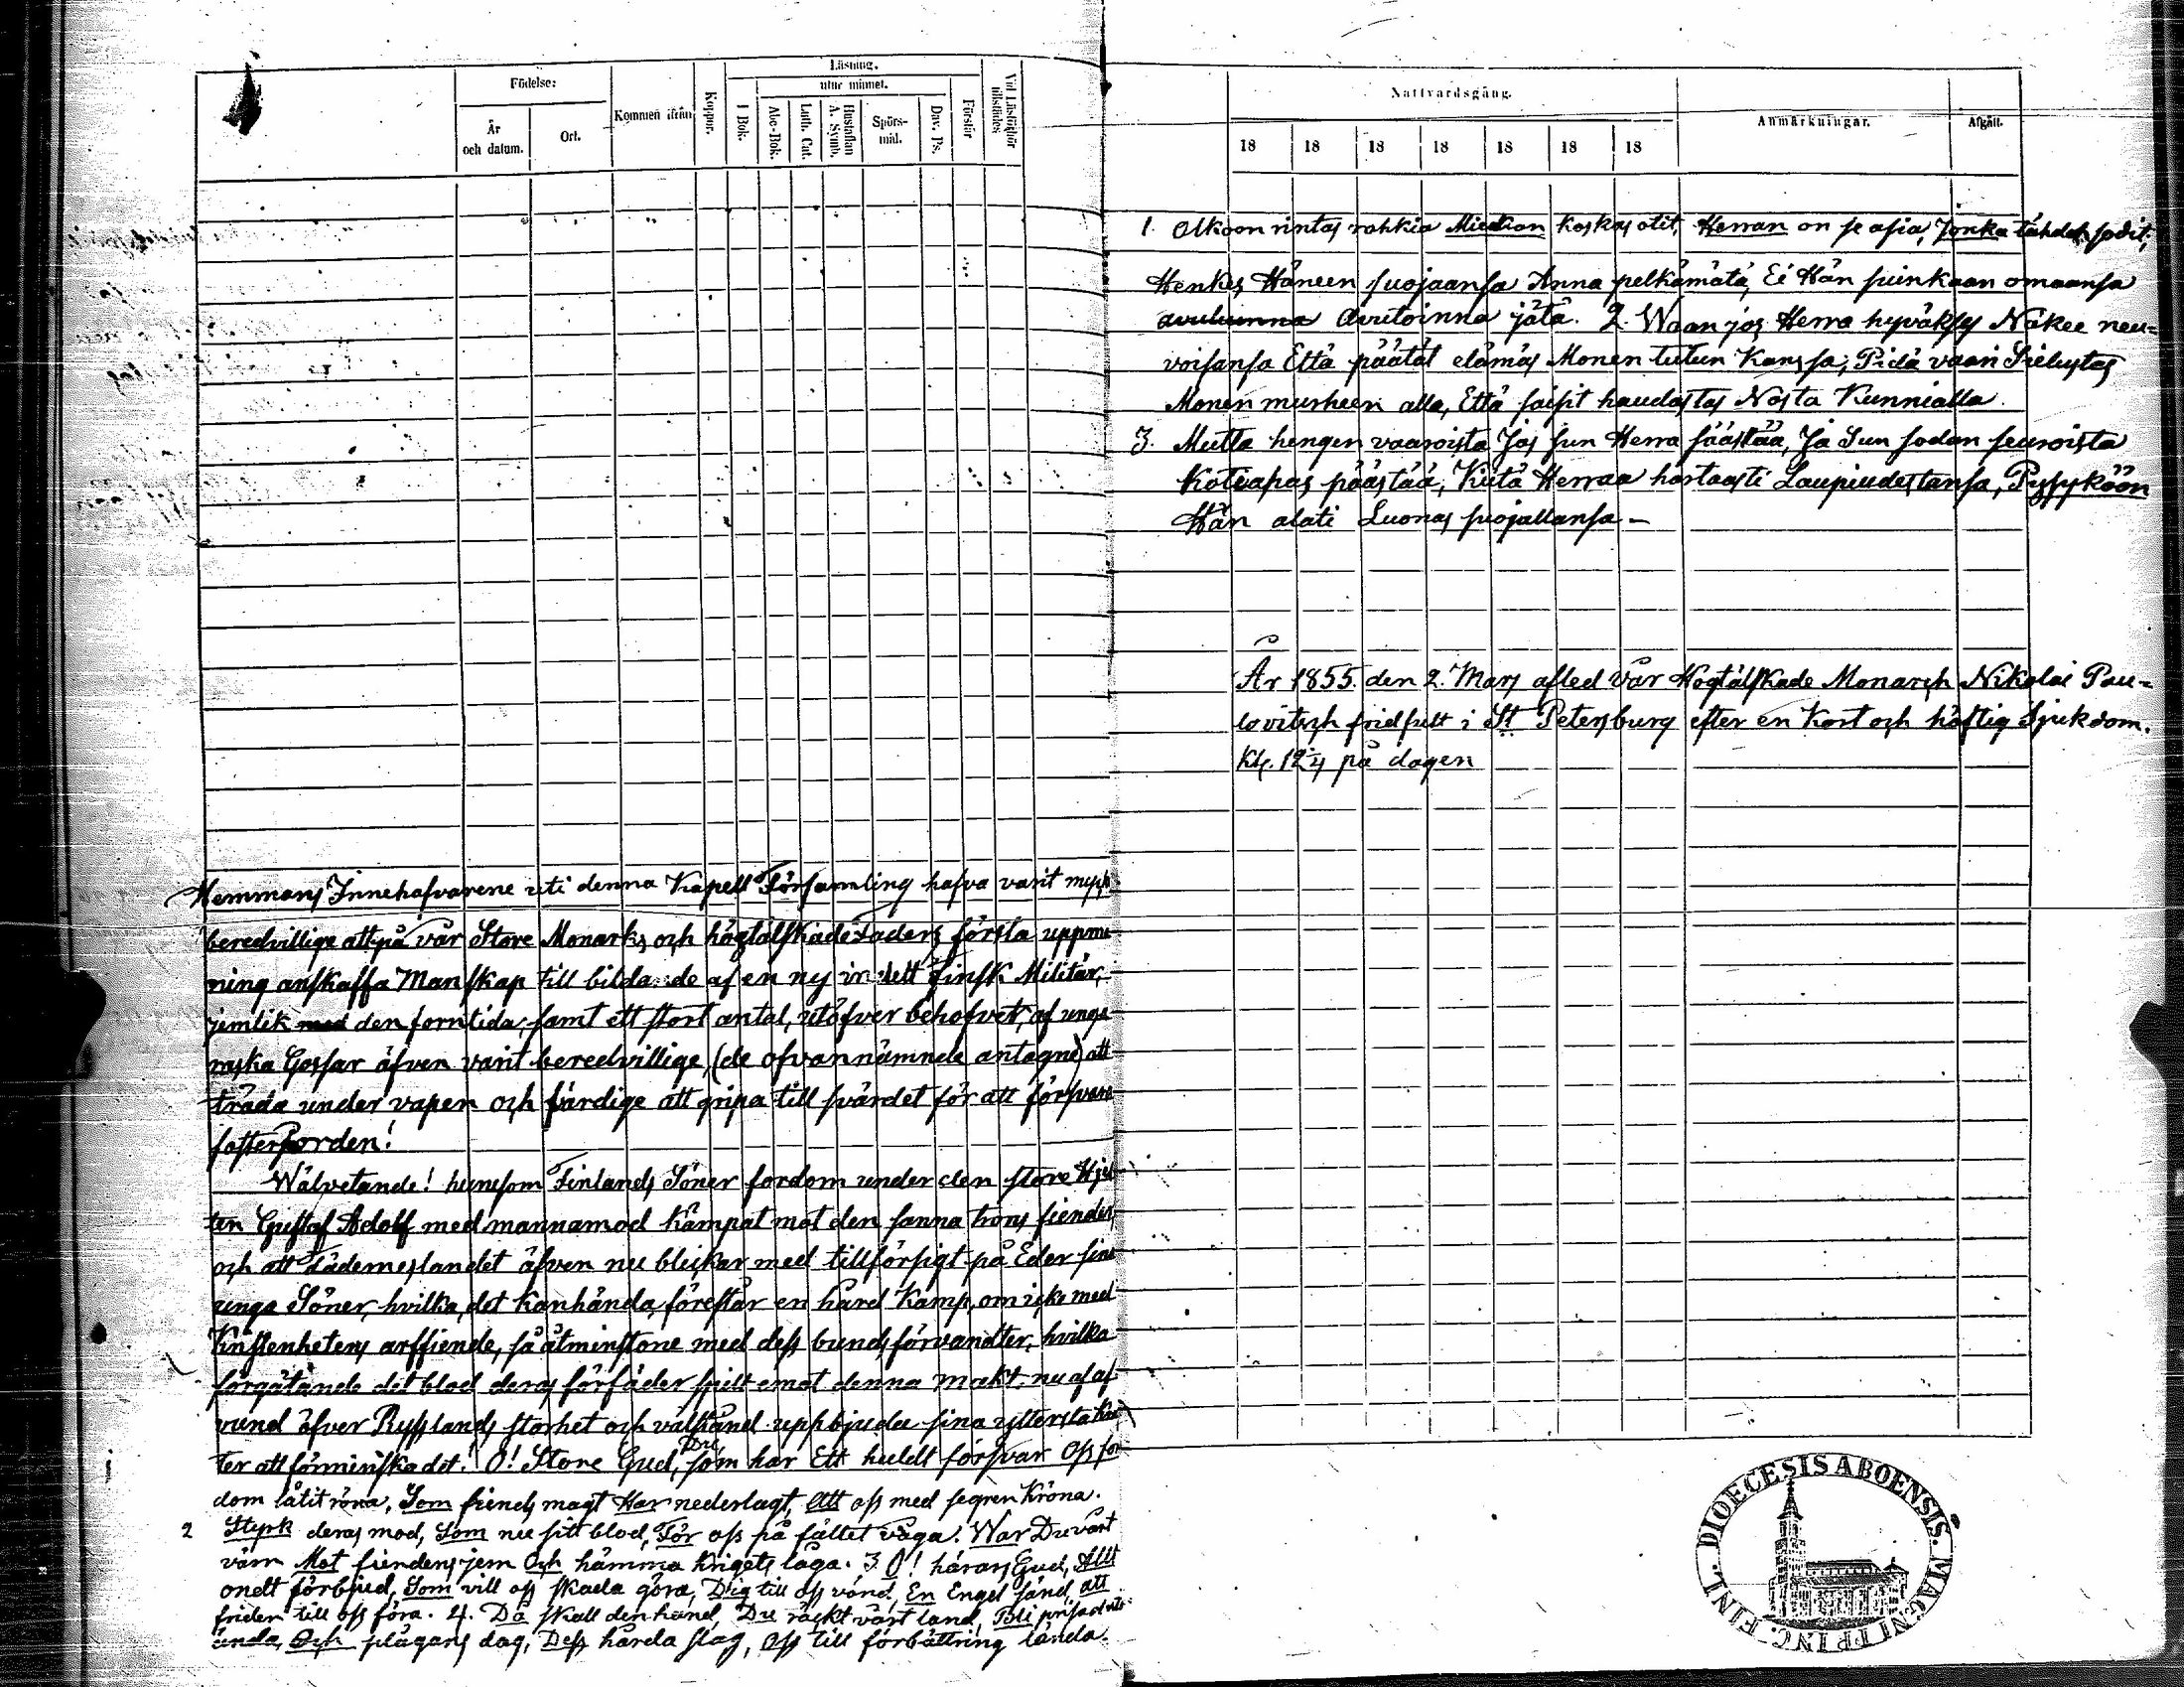 Födelse:
År och datum.
Ort.
Kommen ifrån
Koppor.
Läsning.
utur minnet.
I Bok.
Abc-Bok.
Luth. Cat.
Hustaflan A. Symb.
Spörs-mål.
Dav. Ps.
Förstår
Vid Läsförhör tillstädes
Hemmans Innehafvarene uti denna Kapell Församling hafva varit myck
beredvillige att på vår Store Monarks och högtälskade Faders första uppma
ning anskaffa Manskap till bildande af en ny indelt finsk Militär,
jemlik med den forntida, samt ett stort antal, utöfver behofvet, af unga
raska Gossar äfven varit beredvillige, (de ofvannämnde antagne) att
träda under vapen och färdige att gripa till svärdet för att försvara
fosterjorden!
Wälvetande! hurusom Finlands Söner fordom under den store Hjel
ten Gustaf Adolf med mannamod kämpat mot den sanna trons fiender,
och att Fäderneslandet äfven nu blickar med tillförsigt på Eder sina
unga Söner, hvilka, det kanhända, förestår en hård Kamp, om icke med
Kristenhetens arffiende, så åtminstone med dess bundsförvandter, hvilka
förgätande det blod deras förfäder spilt emot denna makt, nu af af
vund öfver Rysslands storhet och välstånd uppbjuda sina yttersta kraf
ter att förminska det! O! Store Gud, Du som har Ett huldt försvar Oss for
dom låtit röna, Som fiends magt Har nederlagt, Att oss med segren kröna.
2 Styrk deras mod, Som nu sitt blod, För oss på fältet våga. War Du vårt
värn Mot fiendens jern Och hämma krigets låga. 3. O! härars Gud, Allt
ondt förbjud, Som vill oss skada göra, Dig till oss vänd, En Engel sänd, att
friden till oss föra. 4. Då skall den hand, Du räckt vårt land, Bli prisad utan
ända, Och plågans dag, Dess hårda slag, Oss till förbättring lända.
Nattvardsgång.
18 18 18 18 18 18 18
Anmärkningar.
Afgått.
1. Olkoon rintas rohkia Miekan koskas otit, Herran on se asia, Jonka tähden sodit,
Henkes Häneen suojaansa Anna pelkämätä, Ei Hän suinkaan omaansa
Avutoinna jätä. 2. Waan jos Herra hyväksys Näkee neu=
voisansa Että päätät elämäs Monen tutun Kanssa, Pidä vaan Sielustas
Monen murheen alla, Että saisit haudastas Nosta Kunnialla.
3. Mutta hengen vaaroista Jos sun Herra säästää, Ja Sun sodan seuroista
Kotiapas päästää, Kiitä Herraa hartaasti Laupiudestansa, Pysyköön
Hän alati Luonas suojallansa –
År 1855. den 2. Mars afled vår Högtälskade Monarch Nikolai Pau=
lovitsch fridfullt i St Petersburg efter en Kort och häftig Sjukdom.
Kl. 12¼ på dagen
FINL. DIOECESIS ABOENSIS. MAGNI PRINC.